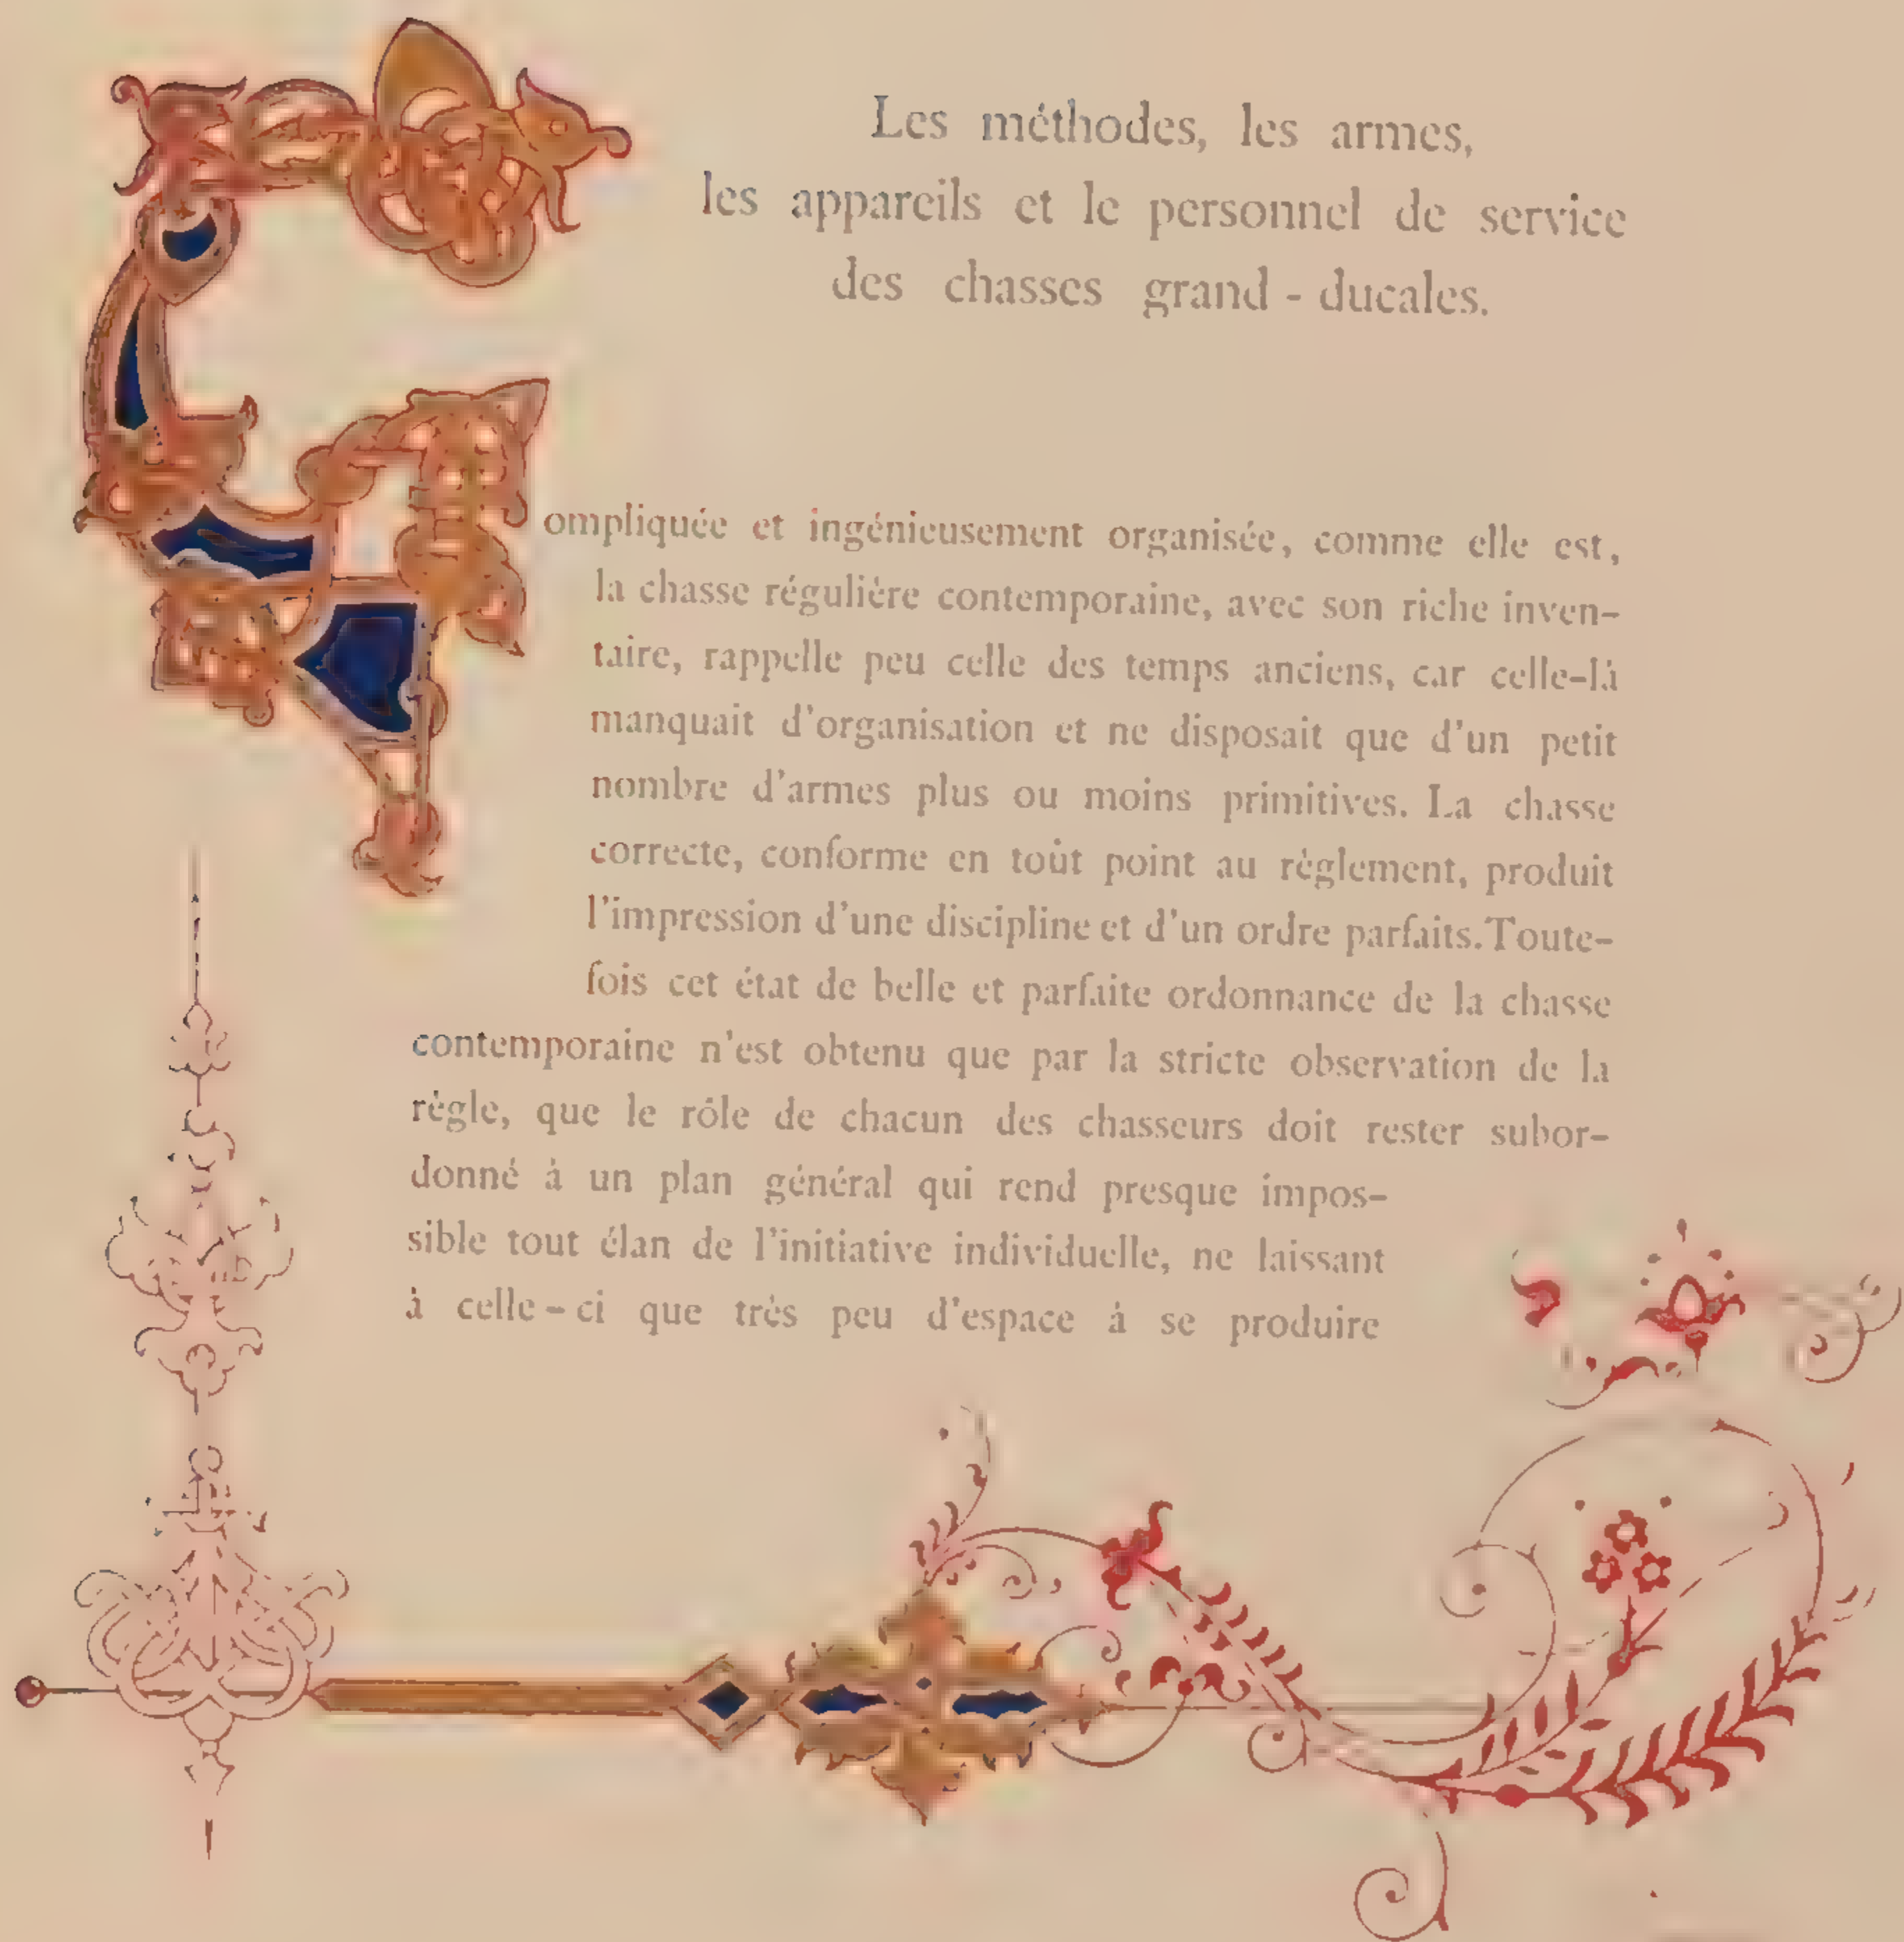 Les méthodes, les armes,
les appareils et le personnel de service
des chasses grand - ducales.
Compliquée et ingénieusement organisée, comme elle est,
la chasse régulière contemporaine, avec son riche inven-
taire, rappelle peu celle des temps anciens, car celle-là
manquait d'organisation et ne disposait que d'un petit
nombre d'armes plus ou moins primitives. La chasse
correcte, conforme en toùt point au règlement, produit
l'impression d'une discipline et d'un ordre parfaits. Toute-
fois cet état de belle et parfaite ordonnance de la chasse
contemporaine n'est obtenu que par la stricte observation de la
règle, que le rôle de chacun des chasseurs doit rester subor-
donné à un plan général qui rend presque impos-
sible tout élan de l'initiative individuelle, ne laissant
à celle-ci que très peu d'espace à se produire